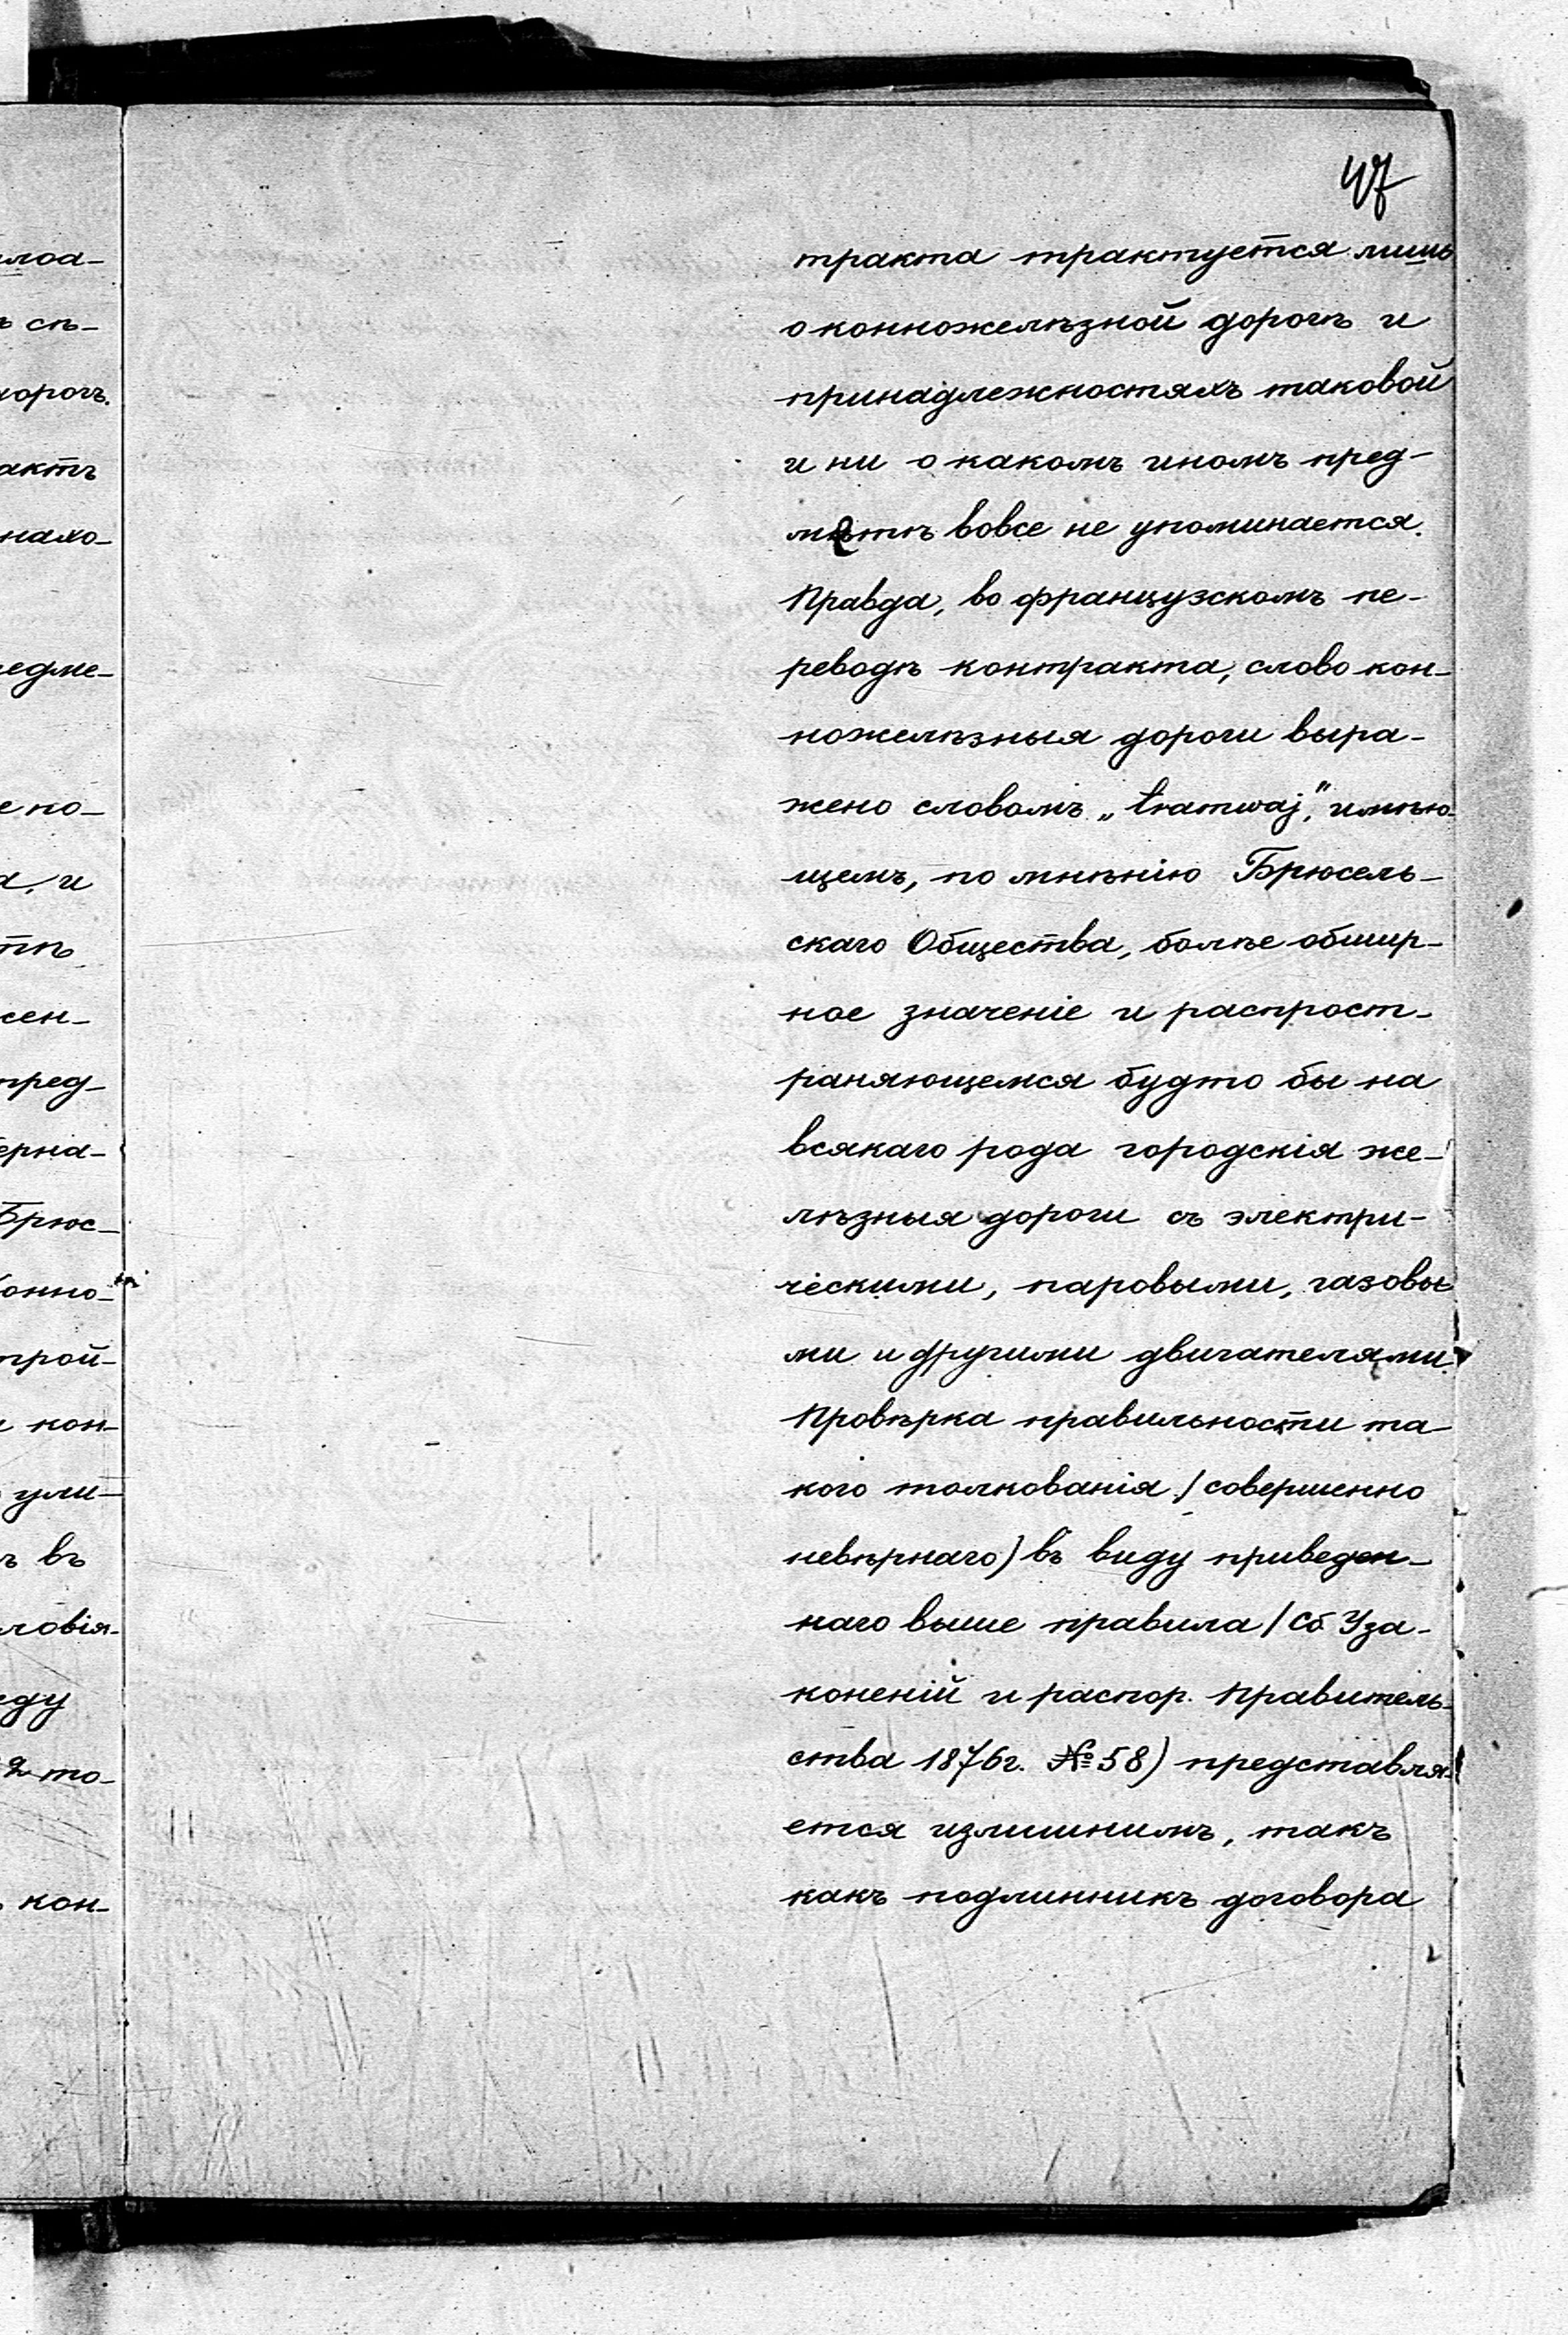 47
тракта трактуется лишь
о конножелѣзной дорогѣ и
принадлежностяхъ таковой
и ни о какомъ иномъ пред-
метѣ вовсе не упоминается.
Правда, во французскомъ пе-
реводѣ контракта, слово кон-
ножелѣзныя дороги выра-
жено словомъ „tramwaj," имѣю-
щемъ, по мнѣнію Брюсель-
скаго Общества, болѣе обшир-
ное значеніе и распрост-
раняющемся будто бы на
всякаго рода городскія же-
лѣзныя дороги съ электри-
ческими, паровыми, газовы
ми и другими двигателями.
Провѣрка правильности та-
кого толкованія /совершенно
невѣрнаго) въ виду приведен-
наго выше правила /Сб Уза-
коненій и распор. Правитель-
ства 1876г. №58) представля-
ется излишнимъ, такъ
какъ подлинникъ договора